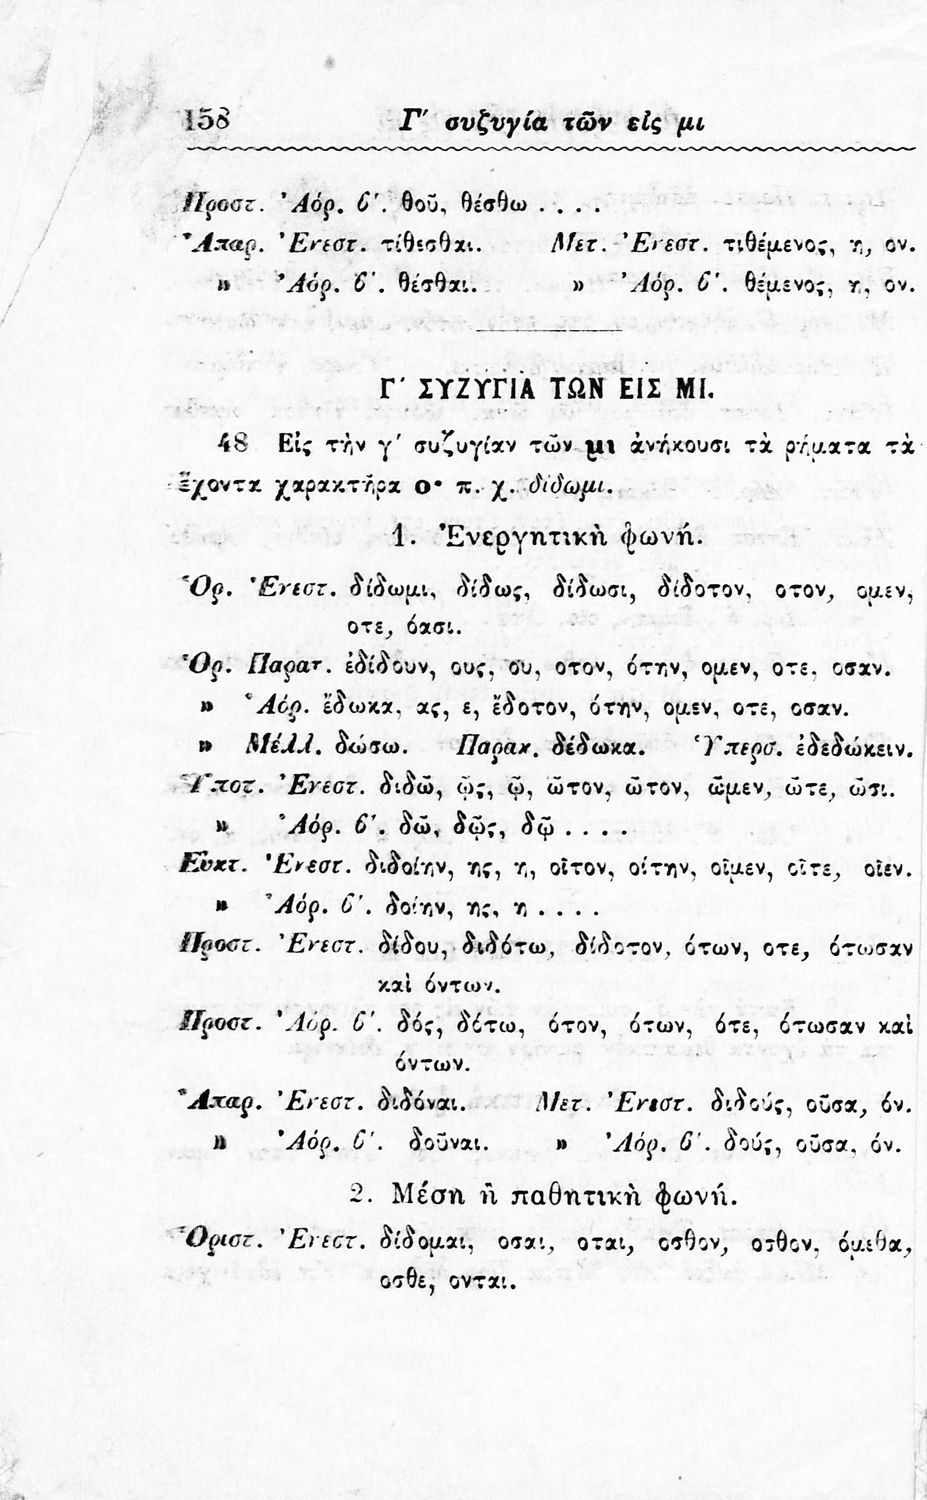 158 Γ΄ συζυγία τῶν εἰς μι
Προστ. Ἀόρ. β΄. θοῦ, θέσθω . . . .
Ἀπαρ. Ἐνεστ. τίθεσθαι. Μετ. Ἐνεστ. τιθέμενος, η, ον.
» Ἀόρ. β΄. θέσθαι. » Ἀόρ. β΄. θέμενος, η, ον.
Γ΄ ΣΥΖΥΓΙΑ ΤΩΝ ΕΙΣ ΜΙ.
48 Εἰς τὴν γ΄ συζυγίαν τῶν μι ἀνήκουσι τὰ ρήματα τὰ
ἔχοντα χαρακτῆρα ο· π. χ. δίδωμι.
1. Ἐνεργητικὴ φωνή.
Ὁρ. Ἐνεστ. δίδωμι, δίδως, δίδωσι, δίδοτον, οτον, ομεν,
οτε, όασι.
Ὁρ. Παρατ. ἐδίδουν, ους, ου, οτον, ότην, ομεν, οτε, οσαν.
» Ἀόρ. ἔδωκα, ας, ε, ἔδοτον, ότην, ομεν, οτε, οσαν.
» Μέλλ. δώσω. Παρακ. δέδωκα. Ὑπερσ. ἐδεδώκειν.
Ὑποτ. Ἐνεστ. διδῶ, ῷς, ῷ, ῶτον, ῶτον, ῶμεν, ῶτε, ῶσι.
» Ἀόρ. β΄. δῶ, δῷς, δῷ . . . .
Εὐκτ. Ἐνεστ. διδοίην, ης, η, οῖτον, οίτην, οῖμεν, οῖτε, οῖεν.
» Ἀόρ. β΄. δοίην, ης, η . . . .
Προστ. Ἐνεστ. δίδου, διδότω, δίδοτον, ότων, οτε, ότωσαν
καὶ όντων.
Προστ. Ἀόρ. β΄. δός, δότω, ότον, ότων, ότε, ότωσαν καὶ
όντων.
Ἀπαρ. Ἐνεστ. διδόναι. Μετ. Ἐνεστ. διδούς, οῦσα, όν.
» Ἀόρ. β΄. δοῦναι. » Ἀόρ. β΄. δούς, οῦσα, όν.
2. Μέση ἢ παθητικὴ φωνή.
Ὁριστ. Ἐνεστ. δίδομαι, οσαι, οται, οσθον, οσθον, όμεθα,
οσθε, ονται.